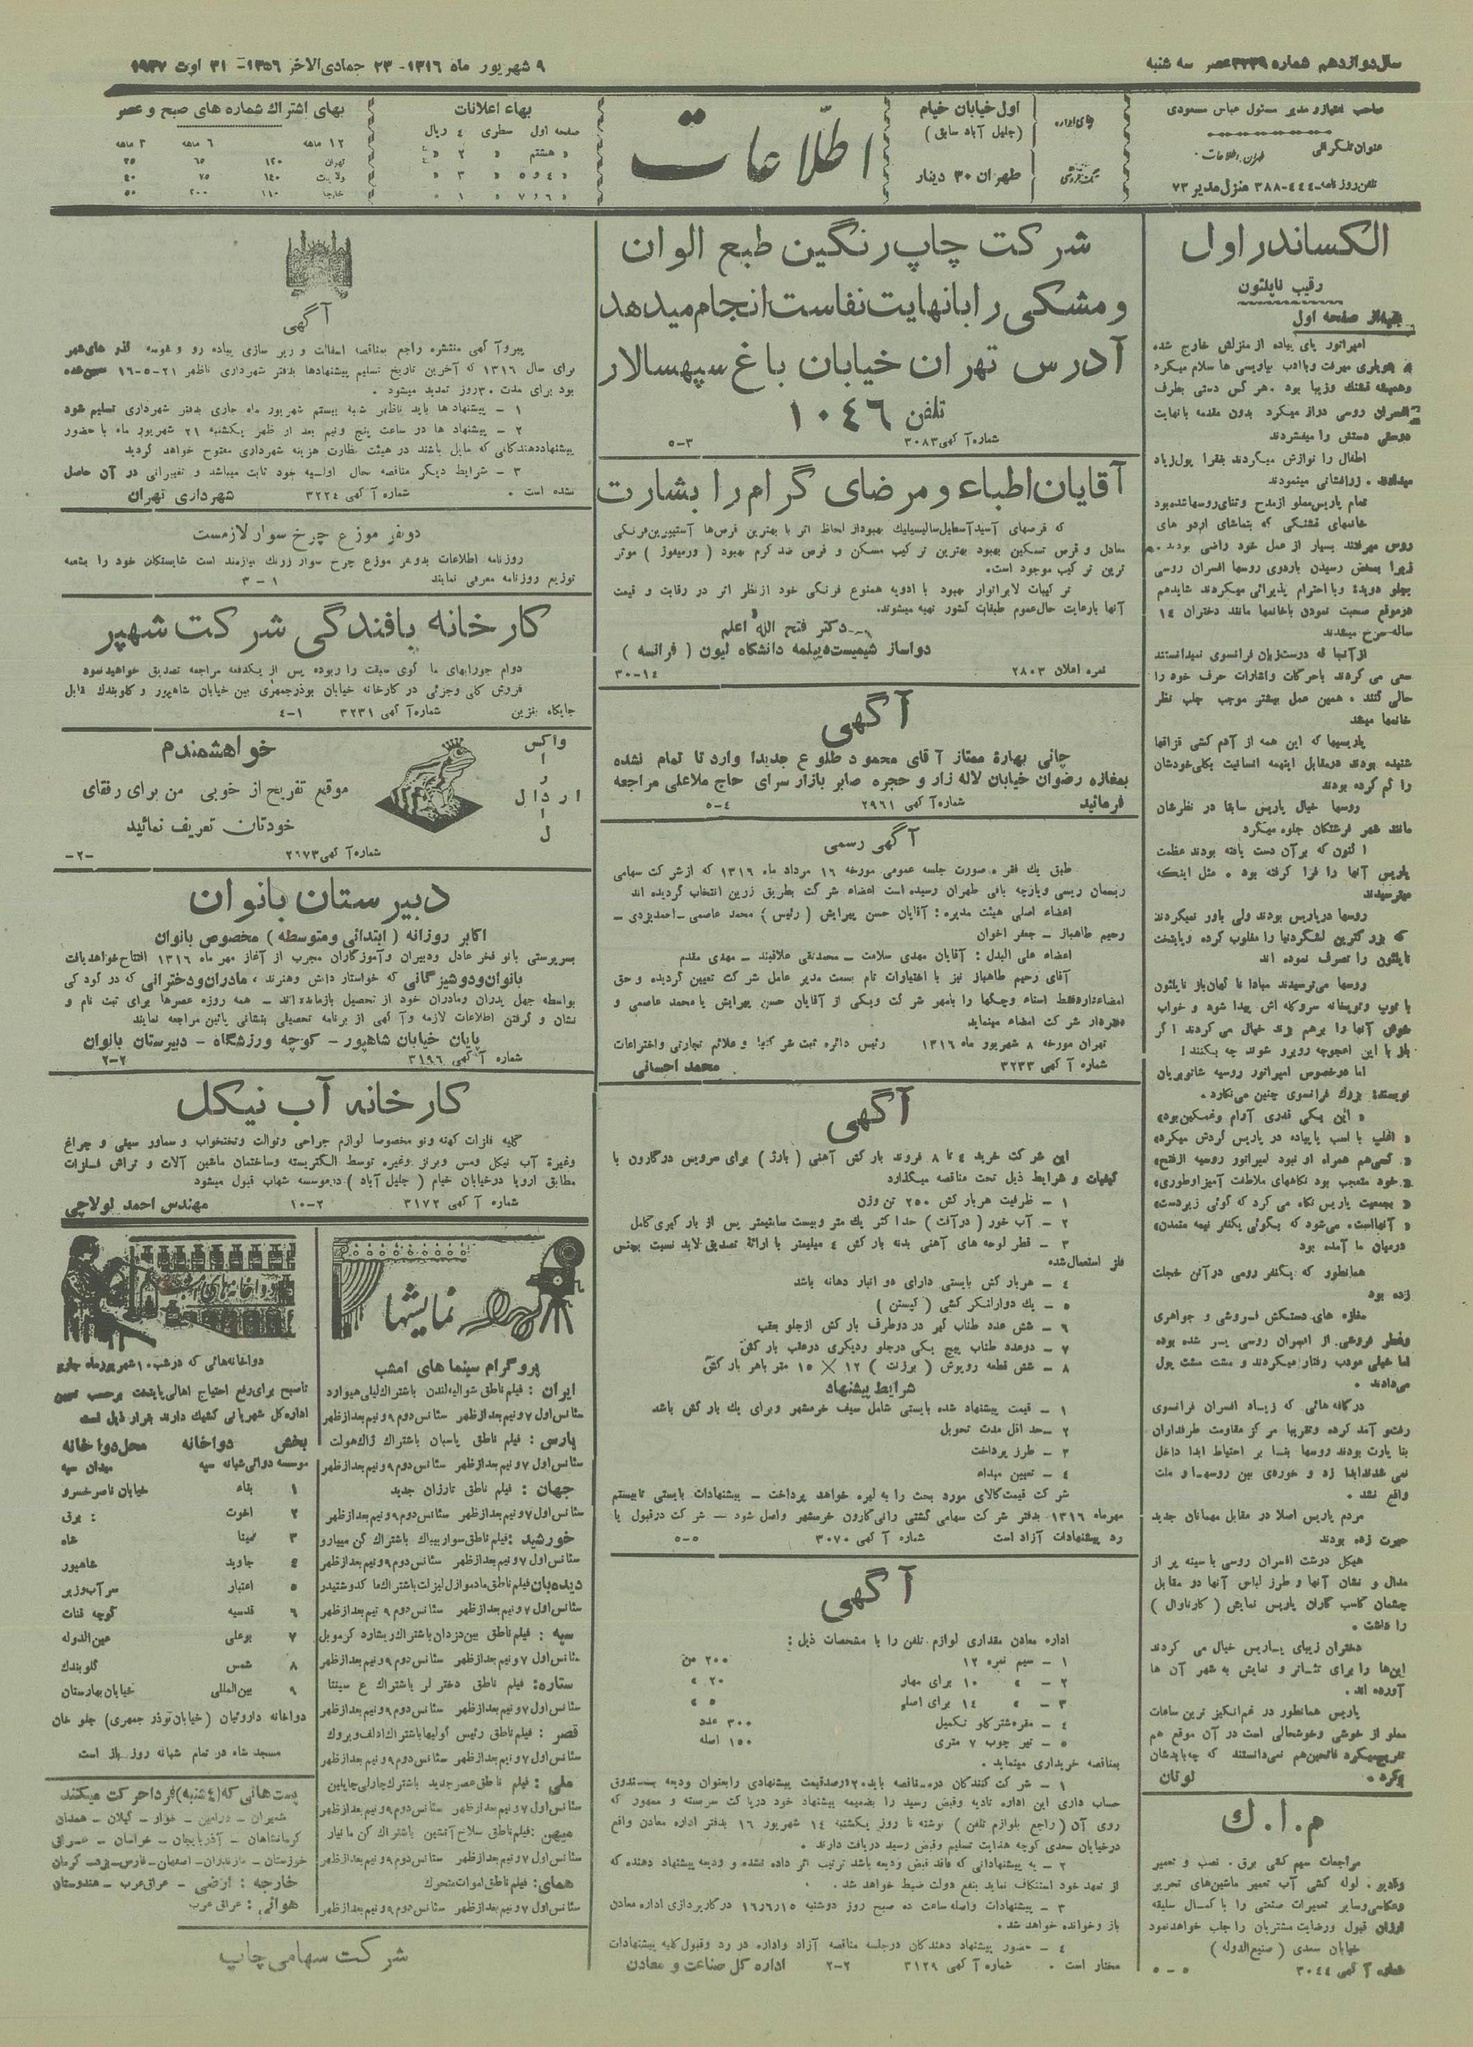 سال دوازدهم شماره ۳۲۳۹ عصر سه شنبه
۹ شهریور ماه ۱۳۱۶- ۲۳ جمادی‌الاخر ۱۳۵۶- ۳۱ اوت ۱۹۳۷
صاحب امتیاز و مدیر مسئول عباس مسعودی
عنوان تلگرافی
طهران اطلاعات
تلفن روزنامه-۴۴۴-۳۸۸ منزل مدیر ۷۳
جای اداره
اول خیابان خیام
(جلیل آباد سابق)
طهران ۳۰ دینار
اطلاعات
بهاء اعلانات
صفحه اول سطری ۴ ریال
« هشتم « ۲ «
« ۴و۵ « ۳ «
« ۶و۷ « ۱ «
بهای اشتراك شماره های صبح و عصر
۱۲ ماهه ۶ ماهه ۳ ماهه
تهران ۱۲۰ ۶۵ ۳۵
ولایت ۱۴۰ ۷۵ ۴۰
خارجا ۱۱۰ ۲۰۰ ۵۰
الکساندر اول
رقیب ناپلئون
بقیه‌از صفحه اول
امپراتور پای پیاده از منزلش خارج شده
وهمیشه قشنك وزیبا بود . هر کس دستی بطرف
افسران روسی دراز میکرد بدون مقدمه بانهایت
دوستی دستش را میفشردند
اطفال را نوازش میکردند بفقرا پول زیاد
میدادند . زرافشانی مینمودند
تمام پاریس مملو ازمدح وثنای روسها شده بود
خانمهای قشنگی که بتماشای اردو های
روس میرفتند بسیار از عمل خود راضی بودند .
زیرا بمحض رسیدن باردوی روسها افسران روسی
بجلو دویده وبا احترام پذیرائی میکردند شاید هم
درموقع صحبت نمودن باخانمها مانند دختران ۱۴
ساله سرخ میشدند
از آنجا که درست زبان فرانسوی نمیدانستند
سعی می کردند باحرکات واشارات حرف خود را
حالی کنند . همین عمل بیشتر موجب جلب نظر
خانمها میشد
پاریسیها که این همه از آدم کشی قزاقها
شنیده بودند درمقابل اینهمه انسانیت بکلی خودشان
را گم کرده بودند
روسها خیال پاریس سابقا در نظرشان
مانند شهر فرشتگان جلوه میکرد
اکنون که برآن دست یافته بودند عظمت
پاریس آنها را فرا گرفته بود . مثل اینکه
میترسیدند
روسها درپاریس بودند ولی باور نمیکردند
که بزرگترین لشگردنیا را مغلوب کرده وپایتخت
ناپلئون را تصرف نموده اند
روسها می‌ترسیدند مبادا نا گهان باز ناپلئون
با توپ وتوپخانه سروکله اش پیدا شود و خواب
خوش آنها را برهم بزند خیال می کردند اگر
باز با این اعجوبه روبرو شوند چه بکنند!
اما درخصوص امپراتور روسیه شاتوبریان
نویسندهٔ بزرك فرانسوی چنین مینگارد .
« این یکی قدری آرام وغمگین بود»
« اغلب با اسب یا پیاده در پاریس گردش میکرد»
« خود متعجب بود نگاههای ملاطفت آمیز اوطوری»
« بجمعیت پاریس نگاه می کرد که گوئی زیردست»
« آنهاست. می‌شود که بگوئی یکنفر نیمه متمدن»
درمیان ما آمده بود
همانطور که یکنفر رومی درآتن خجلت
زده بود
مغازه های دستکش فروشی و جواهری
وعطر فروشی از افسران روسی پر شده بوده
اما خیلی مودب رفتار میکردند و مشت مشت پول
می‌دادند .
درکافه هائی که زیاد افسران فرانسوی
رفت‌و آمد کرده وتقریبا مرکز مقاومت طرفداران
بنا پارت بودند روسها بنا بر احتیاط ابدا داخل
نمی شدندابدا زد و خوردی بین روسها و ملت
واقع نشد .
مردم پاریس اصلا در مقابل مهمانان جدید
حیرت زده بودند
هیکل درشت افسران روسی با سینه پر از
مدال و نشان آنها و طرز لباس آنها در مقابل
چشمان کاسب کاران پاریس نمایش (کارناوال)
را داشت .
دختران زیبای پاریس خیال می کردند
این‌ها را برای تئاتر و نمایش به شهر آن ها
آورده اند .
پاریس همانطور در غم‌انگیز ترین ساعات
مملو از خوشی وخوشحالی است در آن موقع هم
تفریح میکرد فاتحین هم نمی‌دانستند که چه‌بایدشان
کرد .
م . ا . ك
مراجعات سیم کشی برق . نصب و تعمیر
رادیو . لوله کشی آب تعمیر ماشین‌های تحریر
وعکاسی وسایر تعمیرات صنعتی را با کمال سلیقه
ارزان قبول ورضایت مشتریان را جلب خواهد نمود
خیابان سعدی (صنیع‌الدوله)
شماره آگهی ۳۰۴۴ ۵-۵
شرکت چاپ رنگین طبع الوان
و مشکی را بانهایت نفاست انجام میدهد
آدرس تهران خیابان باغ سپهسالار
تلفن ۱۰۴۶
شماره آگهی ۳۰۸۳ ۳-۵
آقایان اطباء و مرضای گرام را بشارت
که قرصهای آسید آسطیل سالیسیلیك بهبود از لحاظ اثر با بهترین قرص‌ها آسپیرین فرنگی
معادل و قرص تسکین بهبود بهترین ترکیب مسکن و قرص ضد کرم بهبود (ورمیفوژ) موثر
ترین ترکیب موجود است.
ترکیبات لابراتوار بهبود با ادویه همنوع فرنگی خود از نظر اثر در رقابت و قیمت
آنها بارعایت حال عموم طبقات کشور تهیه میشوند.
دکتر فتح الله اعلم
دواساز شیمیست دیپلمه دانشگاه لیون (فرانسه)
نمره اعلان ۲۸۰۳ ۱۴-۳۰
آگهی
چائی بهارهٔ ممتاز آقای محمود طلوع جدیدا وارد تا تمام نشده
بمغازه رضوان خیابان لاله زار و حجره صابر بازار سرای حاج ملاعلی مراجعه
فرمائید شماره آگهی ۲۹۶۱ ۴-۵
آگهی رسمی
طبق یك فقره صورت جلسه عمومی مورخه ۱۶ مرداد ماه ۱۳۱۶ که از شرکت سهامی
ریسمان ریسی وپارچه بافی طهران رسیده است اعضاء شرکت بطریق زرین انتخاب گردیده اند
اعضاء اصلی هیئت مدیره: آقایان حسن پیرایش (رئیس) محمد عاصمی -احمدیزدی-
رحیم طاهباز - جعفر اخوان
اعضاء علی البدل: آقایان مهدی سلامت - محمدتقی علاقبند - مهدی مقدم
آقای رحیم طاهباز نیز با اختیارات تام بسمت مدیر عامل شرکت تعیین گردیده و حق
امضاء دارد فقط اسناد وچکها را بامهر شرکت ویکی از آقایان حسن پیرایش یا محمد عاصمی و
دفتردار شرکت امضاء مینماید
تهران مورخه ۸ شهریور ماه ۱۳۱۶ رئیس دائره ثبت شرکتها و علائم تجارتی و اختراعات
شماره آگهی ۳۲۳۳ محمد احسانی
آگهی
این شرکت خرید ۴ تا ۸ فروند بارکش آهنی (بارژ) برای سرویس درکارون با
کیفیات و شرایط ذیل تحت مناقصه میگذارد
۱ - ظرفیت هر بارکش ۲۵۰ تن وزن
۲ - آب خور (درآفت) حداکثر یك متر وبیست سانتیمتر پس از بارگیری کامل
۳ - قطر لوحه های آهنی بدنه بارکش ۴ میلیمتر با ارائهٔ تصدیق لاید نسبت بجنس
فلز استعمال شده
۴ - هر بارکش بایستی دارای دو انبار دهانه باشد
۵ - یك دوارانگر کشی (کپستن)
۶ - شش عدد طناب گیر در دوطرف بارکش ازجلو بعقب
۷ - دوعدد طناب پیچ یکی درجلو ودیگری درعقب بارکش
۸ - شش قطعه روپوش (برزنت) ۱۲ × ۱۵ متر باهر بارکش
شرایط پیشنهاد
۱ - قیمت پیشنهاد شده بایستی شامل سیف خرمشهر وبرای یك بارکش باشد
۲ - حد اقل مدت تحویل
۳ - طرز پرداخت
۴ - تعیین مبداء
شرکت قیمت کالای مورد بحث را به لیره خواهد پرداخت - پیشنهادات بایستی تا بیستم
مهرماه ۱۳۱۶ بدفتر شرکت سهامی کشتی رانی کارون خرمشهر واصل شود - شرکت درقبول یا
رد پیشنهادات آزاد است شماره آگهی ۳۰۷۰ ۵-۵
آگهی
اداره معادن مقداری لوازم تلفن را با مشخصات ذیل:
۱ - سیم نمره ۱۲ ۲۰۰ من
۲ - « ۱۰ برای مهار ۲۰ «
۳ - « ۱۴ برای اصلی ۵ «
۴ - مقره شترگلو تکمیل ۳۰۰ عدد
۵ - تیر چوب ۷ متری ۱۵۰ اصله
بمناقصه خریداری مینماید .
۱ - شرکت کنندگان درمناقصه باید ۲۰درصدقیمت پیشنهادی را بعنوان ودیعه بصندوق
حساب داری این اداره تادیه وقبض رسید را بضمیمه پیشنهاد خود درپاکت سربسته و ممهور که
روی آن (راجع بلوازم تلفن) نوشته تا روز یکشنبه ۱۴ شهریور ۱۶ بدفتر اداره معادن واقع
درخیابان سعدی کوچه هدایت تسلیم وقبض رسید دریافت دارند .
۲ - به پیشنهاداتی که فاقد قبض ودیعه باشد ترتیب اثر داده نشده و ودیعه پیشنهاد دهنده که
از تعهد خود استنکاف نماید بنفع دولت ضبط خواهد شد .
۳ - پیشنهادات واصله ساعت ده صبح روز دوشنبه ۱۶/۶/۱۵ درکارپردازی اداره معادن
باز وخوانده خواهد شد .
۴ - حضور پیشنهاد دهندگان درجلسه مناقصه آزاد واداره در رد وقبول کلیه پیشنهادات
مختار است . شماره آگهی ۳۱۲۹ ۲-۲ اداره کل صناعت و معادن
آگهی
پیرو آگهی منتشره راجع بمناقصه اسفالت و زیر سازی پیاده رو
برای سال ۱۳۱۶ که آخرین تاریخ تسلیم پیشنهادها بدفتر شهرداری تاظهر ۲۱-۵-۱۶
بود برای مدت ۳۰روز تمدید میشود .
۱ - پیشنهادها باید تاظهر شنبه بیستم شهریور ماه جاری بدفتر شهرداری تسلیم شود
۲ - پیشنهاد ها در ساعت پنج ونیم بعد از ظهر یکشنبه ۲۱ شهریور ماه با حضور
پیشنهاددهندگانی که مایل باشند در هیئت نظارت هزینه شهرداری مفتوح خواهد گردید
۳ - شرایط دیگر مناقصه بحال اولیه خود ثابت میباشد و تغییراتی در آن حاصل
نشده است . شماره آگهی ۳۲۲۴ شهرداری تهران
دونفر موزع چرخ سوار لازمست
روزنامه اطلاعات بدونفر موزع چرخ سوار زرنك نیازمند است شایستگان خود را بشعبه
توزیع روزنامه معرفی نمایند ۱-۳
کارخانه بافندگی شرکت شهپر
دوام جورابهای ما گوی سبقت را ربوده پس از یکدفعه مراجعه تصدیق خواهید نمود
فروش کلی وجزئی در کارخانه خیابان بوذرجمهری بین خیابان شاهپور و گلوبندك مقابل
جایگاه بنزین شماره آگهی ۳۲۳۱ ۱-۴
واکس
اردال
خواهشمندم
موقع تفریح از خوبی من برای رفقای
خودتان تعریف نمائید
شماره آگهی ۲۶۷۳ -۲-
دبیرستان بانوان
اکابر روزانه (ابتدائی ومتوسطه) مخصوص بانوان
بسرپرستی بانو فخر عادل ودبیران وآموزگاران مجرب از آغاز مهر ماه ۱۳۱۶ افتتاح خواهدیافت
بانوان ودوشیزگانی که خواستار دانش وهنرند ، مادران ودخترانی که در کودکی
بواسطه جهل پدران ومادران خود از تحصیل بازمانده‌اند - همه روزه عصرها برای ثبت نام و
نشان و گرفتن اطلاعات لازمه وآگهی از برنامه تحصیلی بنشانی پائین مراجعه نمایند
پایان خیابان شاهپور - کوچه ورزشگاه - دبیرستان بانوان
شماره آگهی ۳۱۹۶ ۲-۲
کارخانه آب نیکل
کلیه فلزات کهنه ونو مخصوصا لوازم جراحی وتوالت وتختخواب و سماور سینی و چراغ
وغیره آب نیکل ومس وبرنز وغیره توسط الکتریسته وساختمان ماشین آلات و تراش فلزات
مطابق اروپا درخیابان خیام (جلیل آباد) درموسسه شهاب قبول میشود
شماره آگهی ۳۱۷۲ ۲-۱۰ مهندس احمد لولاچی
نمایشها
پروگرام سینما های امشب
ایران: فیلم ناطق شوالیه لندن باشتراك لیلی هیوارد
سئانس اول ۷ ونیم بعدازظهر سئانس دوم ۹ ونیم بعدازظهر
پارس: فیلم ناطق پاسبان باشتراك ژاك هولت
سئانس اول ۷ ونیم بعدازظهر سئانس دوم ۹ ونیم بعدازظهر
جهان: فیلم ناطق تارزان جدید
سئانس اول ۷ ونیم بعدازظهر سئانس دوم ۹ ونیم بعدازظهر
خورشید: فیلم ناطق سوار بیباك باشتراك کن مینارو
سئانس اول ۷ ونیم بعدازظهر سئانس دوم ۹ ونیم بعدازظهر
دیده‌بان فیلم ناطق مادموازل لیزلت باشتراك
سئانس اول ۷ ونیم بعدازظهر سئانس دوم ۹ ونیم بعدازظهر
سپه: فیلم ناطق بین دزدان باشتراك ریشارد کرموبل
سئانس اول ۷ ونیم بعدازظهر سئانس دوم ۹ ونیم بعدازظهر
ستاره: فیلم ناطق دختر لر باشتراك ع سپنتا
سئانس اول ۷ ونیم بعدازظهر سئانس دوم ۹ ونیم بعدازظهر
قصر: فیلم ناطق رئیس کولیها باشتراك ادلف وبروك
سئانس اول ۷ ونیم بعدازظهر سئانس دوم ۹ ونیم بعدازظهر
ملی: فیلم ناطق عصر جدید باشتراك چارلی چاپلین
سئانس اول ۷ ونیم بعدازظهر سئانس دوم ۹ ونیم بعدازظهر
میهن: فیلم ناطق سلاح آتشین باشتراك کن ماینار
سئانس اول ۷ ونیم بعدازظهر سئانس دوم ۹ ونیم بعدازظهر
همای: فیلم ناطق اموات متحرك
سئانس اول ۷ ونیم بعدازظهر سئانس دوم ۹ ونیم بعدازظهر
دواخانه‌هائی که درشب ۱۰ شهریور ماه جاری
تاصبح برای رفع احتیاج اهالی پایتخت برحسب تعیین
اداره کل شهربانی کشیك دارند بقرار ذیل است
بخش دواخانه محل دواخانه
موسسه دوائی شبانه سپه میدان سپه
۱ بقاء خیابان ناصرخسرو
۲ اخوت « برق
۳ مینا شاه
۴ جاوید شاهپور
۵ اعتبار سرآب وزیر
۶ قدسیه کوچه قنات
۷ بوعلی عین‌الدوله
۸ شمس گلوبندك
۹ بین‌المللی خیابان بهارستان
دواخانه داروئیان (خیابان بوذر جمهری) جلو خان
مسجد شاه در تمام شبانه روز باز است
پست هائی که (۴شنبه) فردا حرکت میکنند
شمیران - ورامین - خوار - گیلان - همدان
کرمانشاهان - آذربایجان - خراسان - عراق
خوزستان - مازندران - اصفهان - فارس - یزد - کرمان
خارجه: ارضی - عراق عرب - هندوستان
هوائی: عراق عرب
شرکت سهامی چاپ